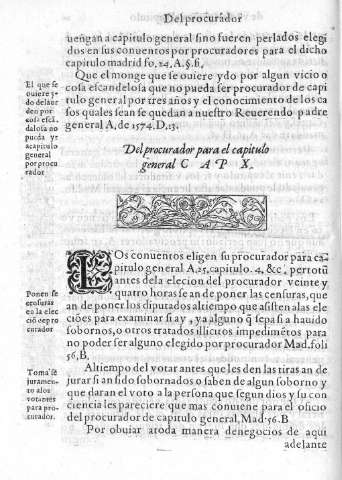 Del procurador
uengan a capitulo general sino fueren perlados elegi
dos en sus conuentos por procuradores para el dicho
capitulo madrid fo. 24. A. §. 6.
Que el monge que se ouiere ydo por algun vicio o
cosa escandelosa que no pueda ser procurador de capi
tulo general por tres años y el conocimiento de los ca
sos quales sean se quedan a nuestro Reuerendo padre
general A. de 1574. D. 13.
El que se
ouiere y-
do del aur
den por
cosa escā
dalosa no
pueda yr
a capitulo
general
por procu
rador
Del procurador para el capitulo
general C A P X.
LOs conuentos eligen su procurador para ca-
pitulo general A. 25. capitulo. 4, &c. per totū
antes de la elecion del procurador veinte y
quatro horas se an de poner las censuras, que
an de poner los diputados al tiempo que asisten a las ele
ciões para examinar si ay, ya alguno q̄ sepa si a hauido
sobornos, o otros tratados illicitos impedimētos para
no poder ser alguno elegido por procurador Mad. foli
56, B.
Ponen se
censuras
en la elec
ciō de pro
curador
Al tiempo del votar antes que les den las tiras an de
jurar si an sido sobornados o saben de algun soborno y
que daran el voto a la persona que segun dios y su con
ciencia les pareciere que mas conuiene para el oficio
del procurador de capitulo general, Mad. 56. B
Toma se
jurame-
nto a los
votantes
para pro-
curador.
Por obuiar a toda manera de negocios de aqui
adelante